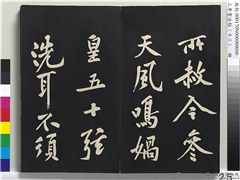 所赦今參
天風鳴媧
皇五十弦
洗耳不須